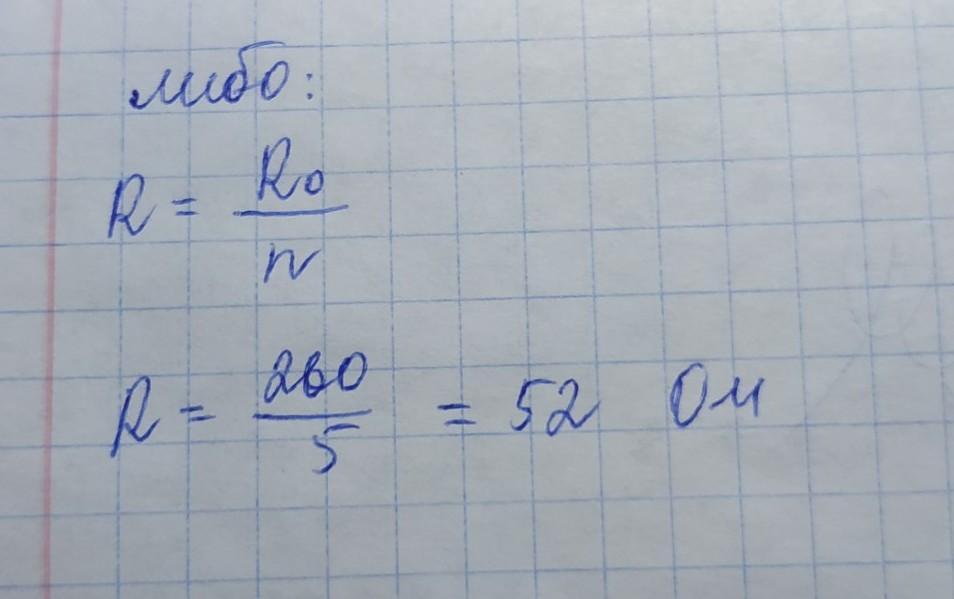 либо:
R = R₀ / n
R = 260 / 5 = 52 Ом